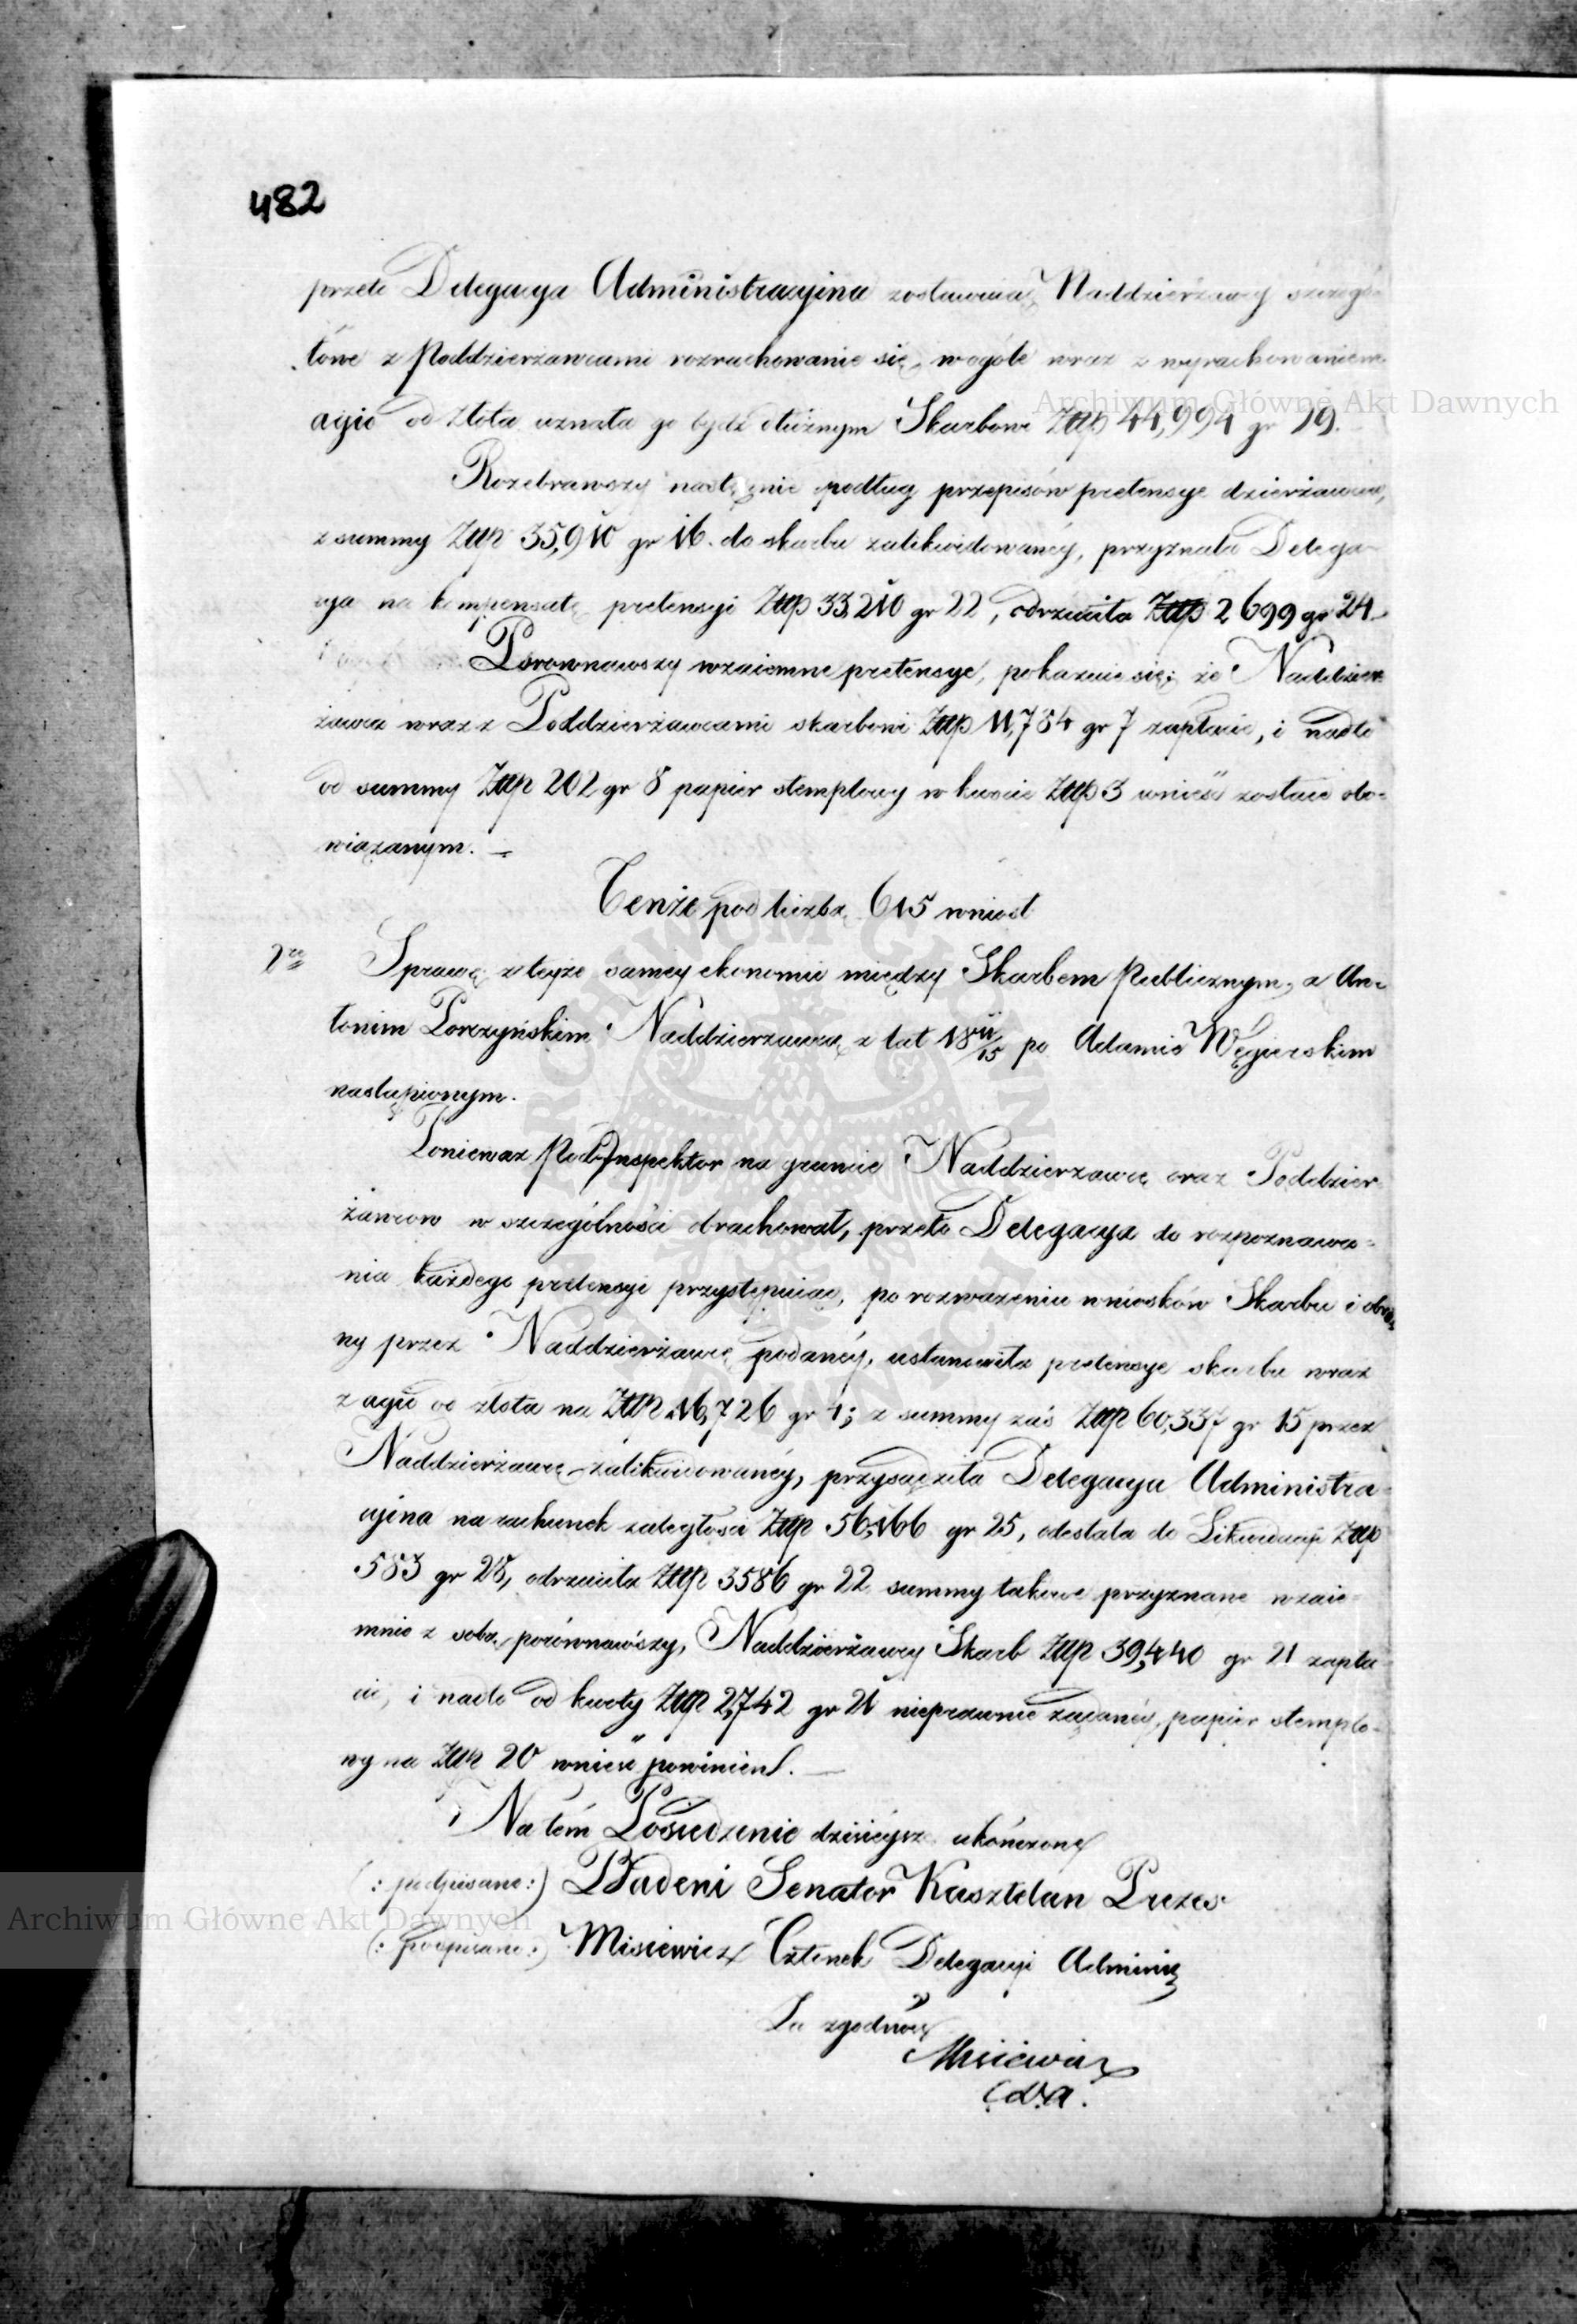 482
przeto Delegacya Administracyina zostawiaiąc Naddzierżawcy szczegó-
łowe z Poddzierżawcami rozrachowanie się, wogóle wraz z wyrachowaniem
agio od złota uznała go bydź dłużnym Skarbowi Złłp 44,994 gr 29.
Rozebrawszy następnie podług przepisów pretensye dzierżawcy,
z summy Złłp 35,910 gr 16. do skarbu zalikwidowanéy, przyznała Delega-
cya na kompensatę pretensyi Złłp 33,210 gr 22, odrzuciła Złłp 2699 gr 24.
Porownawszy wzaiemne pretensye, pokazuie się; że Naddzier-
żawca wraz z Poddzierżawcami skarbowi Złłp 11,784 gr 7 zapłacić, i nadto
od summy Złłp 202 gr 8 papier stemplowy w kwocie Złłp 3 wnieść zostaie obo-
wiązanym. —
Tenże pod liczbą 615 wniosł
2re Sprawę z teyże samey ekonomii między Skarbem Publicznym, a An-
tonim Porczyńskim Naddzierzawcą z lat 18 11/15 po Adamie Węgierskim
nastąpionym.
Ponieważ PodInspektor na gruncie Naddzierzawcę oraz Poddzier-
żawcow w szczególności obrachował, przeto Delegacya do rozpoznawa-
nia każdego pretensyi przystępuiąc, po rozważeniu wniosków Skarbu i obro-
ny przez Naddzierżawcę podanéy, ustanowiła pretensye skarbu wraz
z agio od złota na Złłp 16,726 gr 4; z summy zaś Złłp 60,337 gr 15 przez
Naddzierżawcę zalikwidowanéy, przysądziła Delegacya Administra-
cyina na rachunek zaległości Złłp 56,166 gr 25, odesłała do Likwidacyi Złłp
583 gr 28, odrzuciła Złłp 3586 gr 22 summy takowe przyznane wzaie-
mnie z sobą porównawszy, Naddzierżawcy Skarb Złłp 39,440 gr 21 zapła-
cić, i nadto od kwoty Złłp 2,742 gr 21 nieprawnie żądanéy, papier stemplo-
wy na Złłp 20 wnieść powinien. —
Na tém Posiedzenie dzisiéysze ukończone
(: podpisano :) Badeni Senator Kasztelan Prezes
(: podpisano :) Misiewicz Członek Delegacyi Adminis
Za zgodność
Misiewicz
C.D.A.
Archiwum Główne Akt Dawnych
Archiwum Główne Akt Dawnych